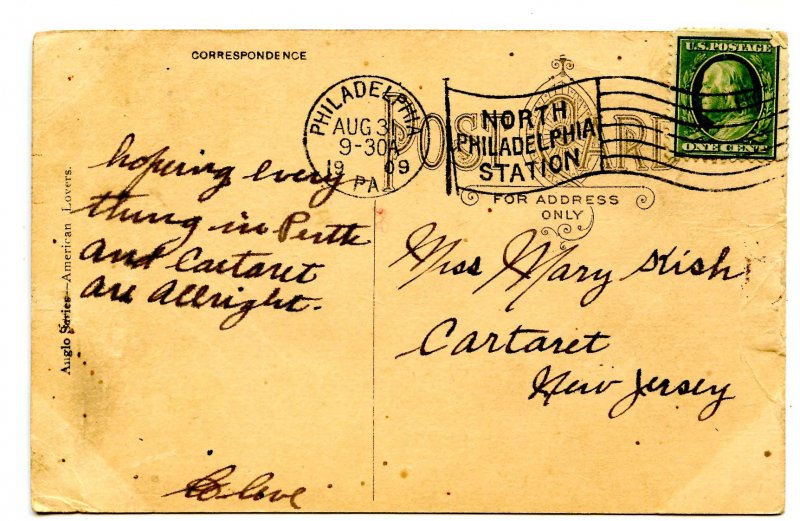 CORRESPONDENCE
hopeing every
thing in Perth
and Cartaret
are allright.
Anglo Series—American Lovers.
PHILADELPHIA
AUG 31
9-30A
1909
PA
NORTH
PHILADELPHIA
STATION
POST CARD
FOR ADDRESS
ONLY
U.S. POSTAGE
ONE CENT
Miss Mary Kish
Cartaret
New Jersey